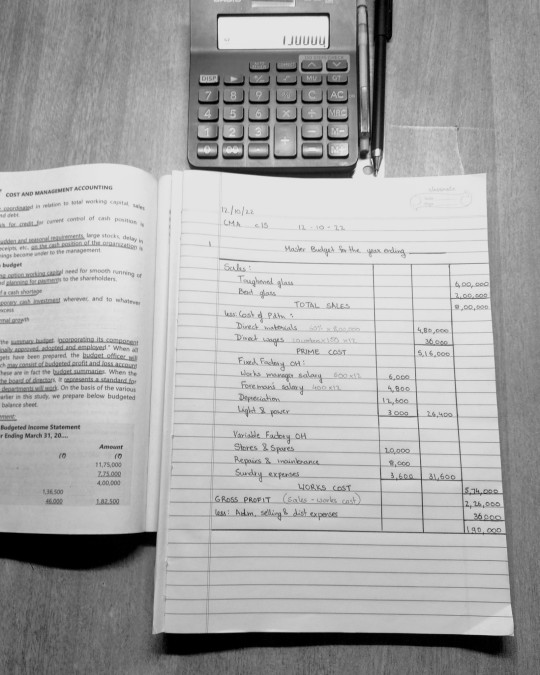 DISP
MU
GT
7 8 9 C AC
4 5 6 X ÷ MRC
1 2 3 + - M-
0 00 .
COST AND MANAGEMENT ACCOUNTING
coordinated in relation to total working capital, sales
for credit for current control of cash position is
sudden and seasonal requirements, large stocks, delay in
receipts, etc., on the cash position of the organisation
become under to the management.
budget
working capital need for smooth running of
planning for payments to the shareholders.
cash shortage
cash investment wherever, and to whatever
growth
the summary budget incorporating its component
finally approved, adopted and employed." When all
gets have been prepared, the budget officer will
may consist of budgeted profit and loss account
These are in fact the budget summaries. When the
the board of directors, it represents a standard for
departments will work. On the basis of the various
earlier in this study, we prepare below budgeted
balance sheet.
Budgeted Income Statement
Ending March 31, 20....
Amount
(₹) (₹)
11,75,000
7,75,000
4,00,000
1,36,500
46,000 1,82,500
12/10/22
CMA
12-10-22
1 Master Budget for the year ending
Sales:
Toughened glass 6,00,000
Bent glass 2,00,000
TOTAL SALES 8,00,000
less: Cost of Pdtn:
Direct materials 4,80,000
Direct wages 36,000
PRIME COST 5,16,000
Fixed Factory OH:
Works manager salary 500 x 12 6,000
Foremans salary 400 x 12 4,800
Depreciation 12,600
Light & power 3000 26,400
Variable Factory OH
Stores & Spares 20,000
Repairs & maintenance 8,000
Sundry expenses 3,600 31,600
WORKS COST 5,74,000
GROSS PROFIT (Sales - works cost) 2,26,000
less: Adm, selling & dist expenses 36000
190,000